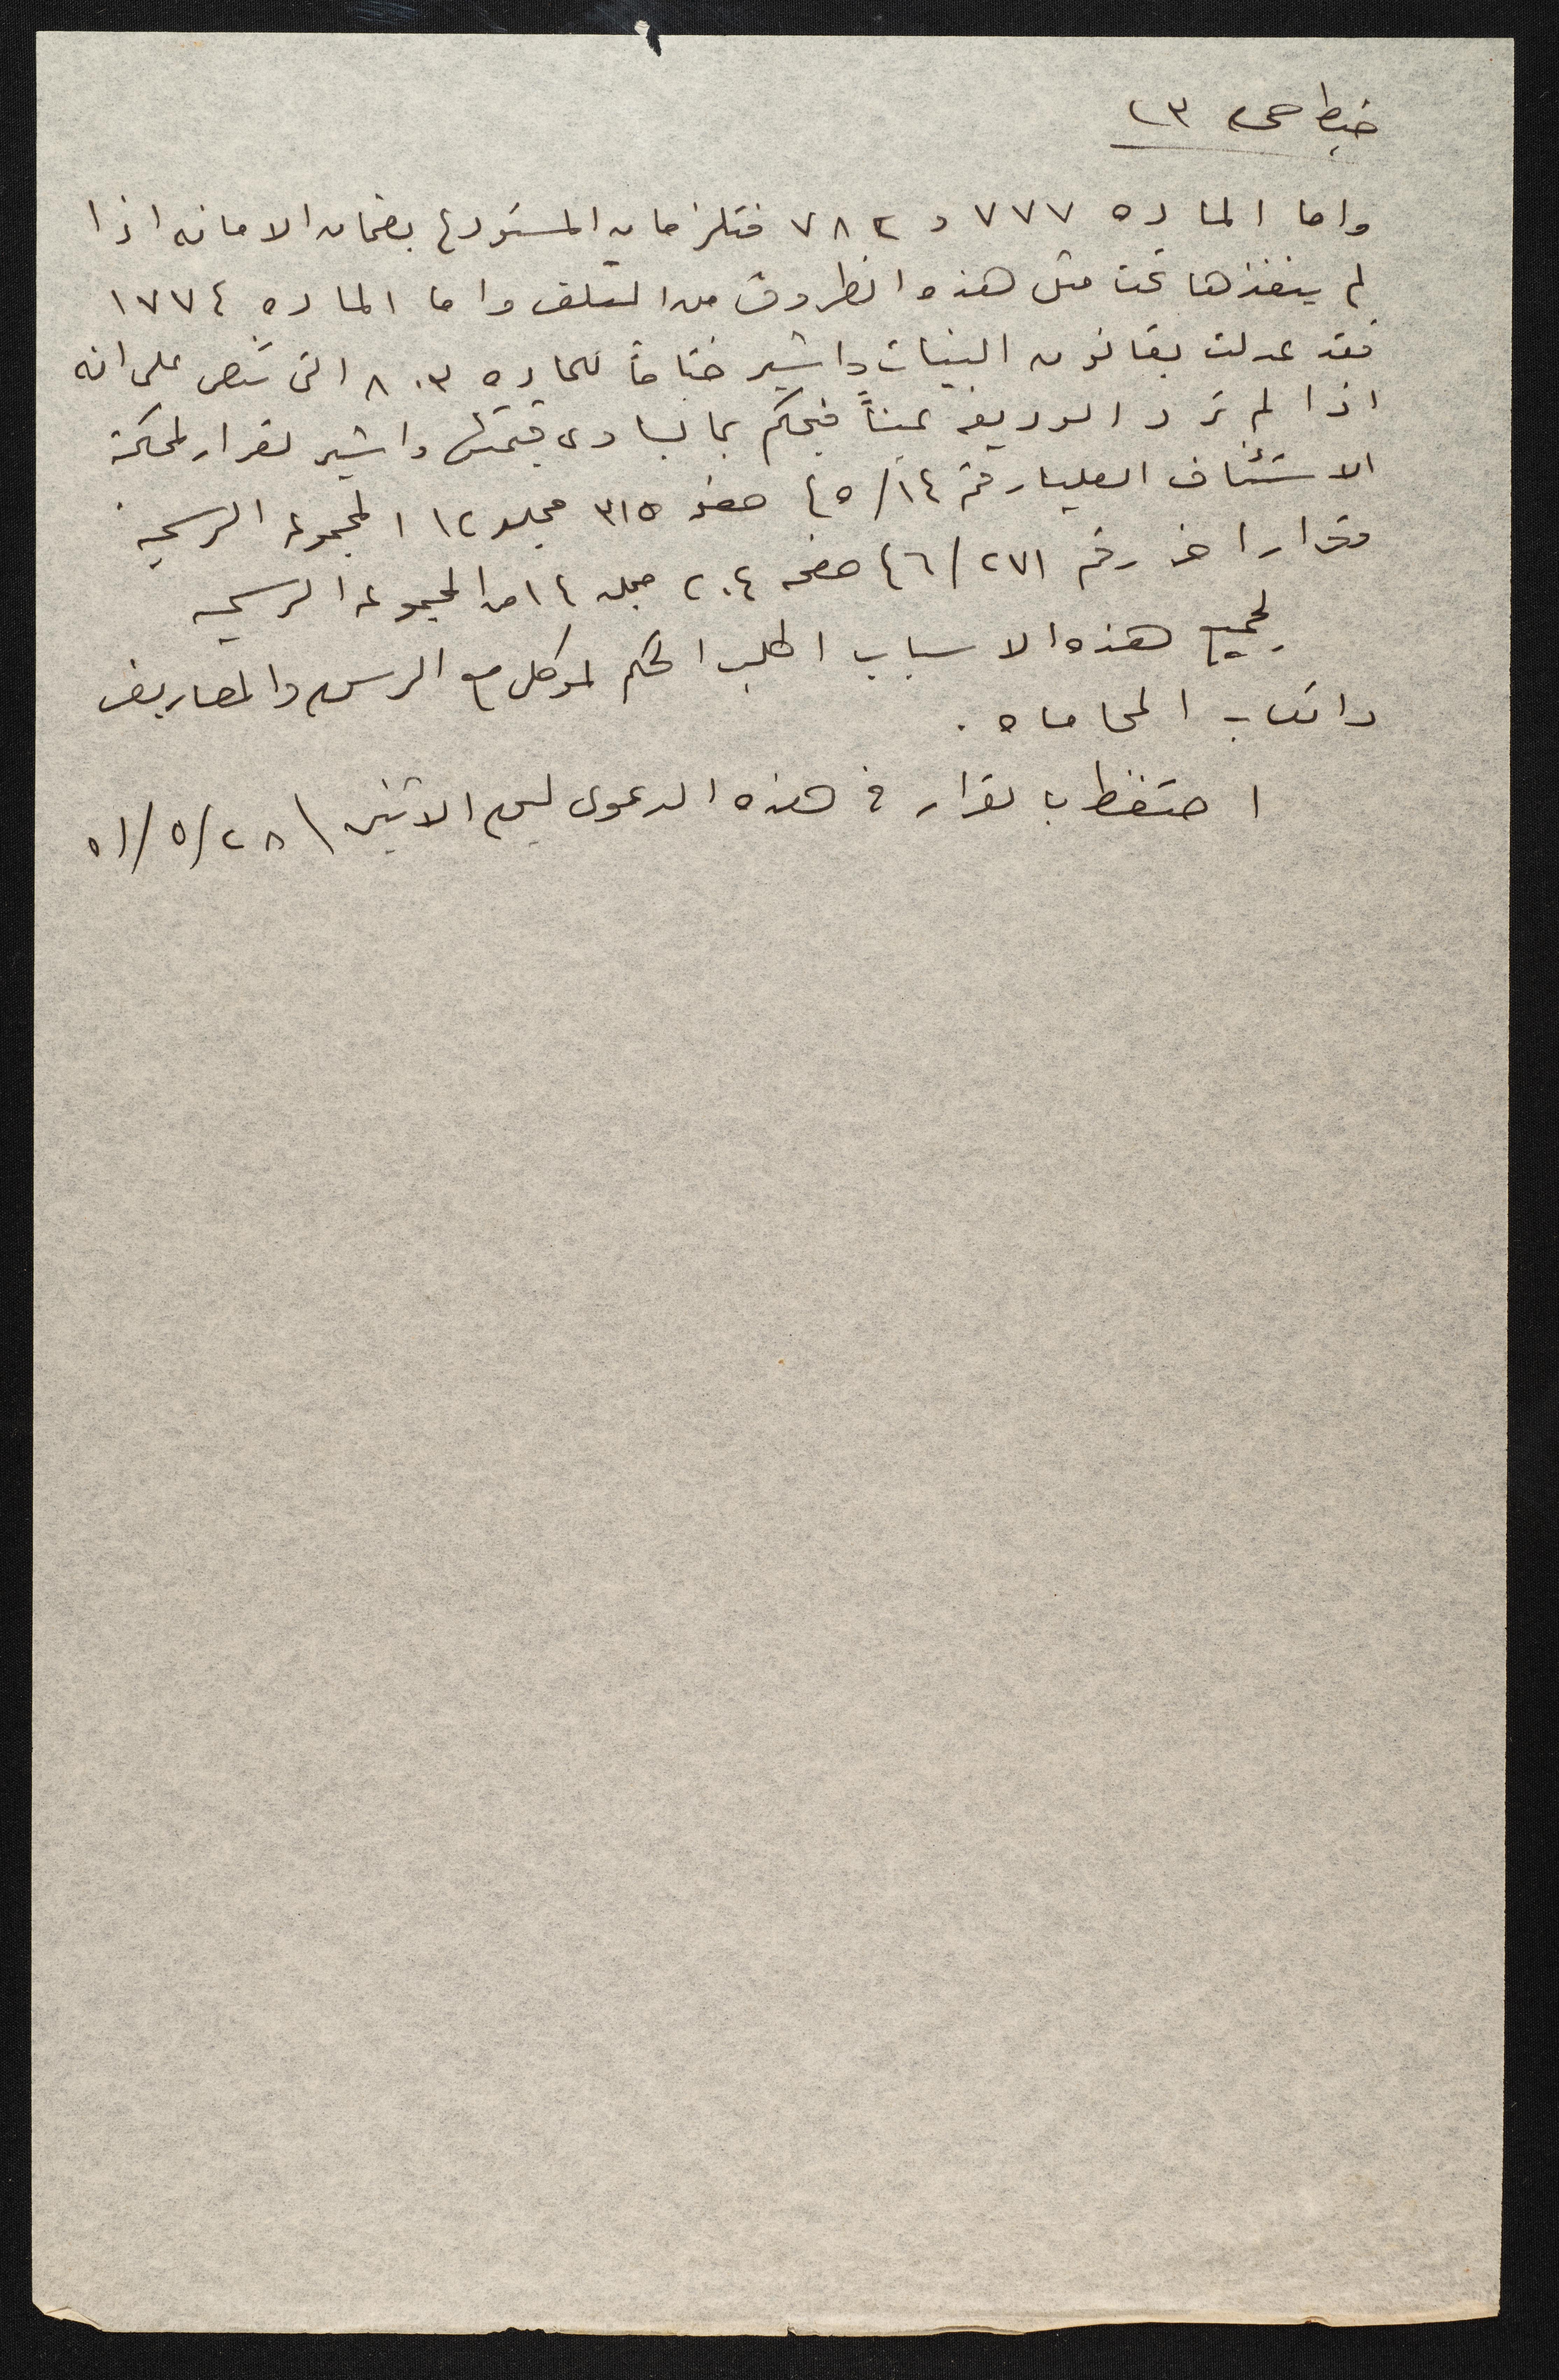 ضبط ص ٢٣
واما الماده ٧٧٧ و ٧٨٢ فتلزمان المستودع بضمان الامانه اذا
لم ينفذها تحت مثل هذه الظروف من التلف واما الماده ١٧٧٤
فقد عدلت بقانون البينات واشير ختاماً للماده ٨٠٣ التي تنص على انه
اذا لم ترد الوديعه عيناً فيحكم بما يساوي قيمتها واشير لقرار لمحكمة
الاستئناف العليا رقم ٤٥/١٤ صفحه ٣١٥ مجلد ١٢ المجموعه الرسميه
وقرارا اخر رقم ٤٦/٢٧١ صفحه ٢٠٤ مجلد ١٤ من المجموعه الرسميه
لجميع هذه الاسباب اطلب الحكم لموكلي مع الرسوم والمصاريف
واتعاب المحاماه .
احتفظ بالقرار في هذه الدعوى ليوم الاثنين ٥١/٥/٢٨